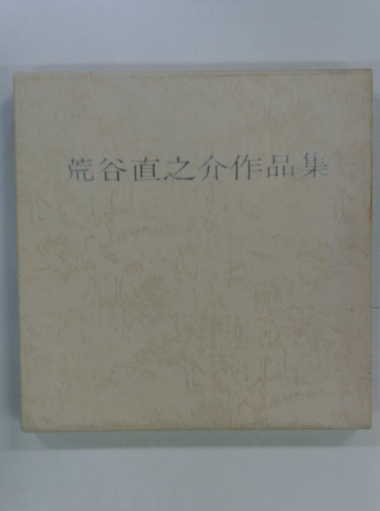 荒谷直之介作品集